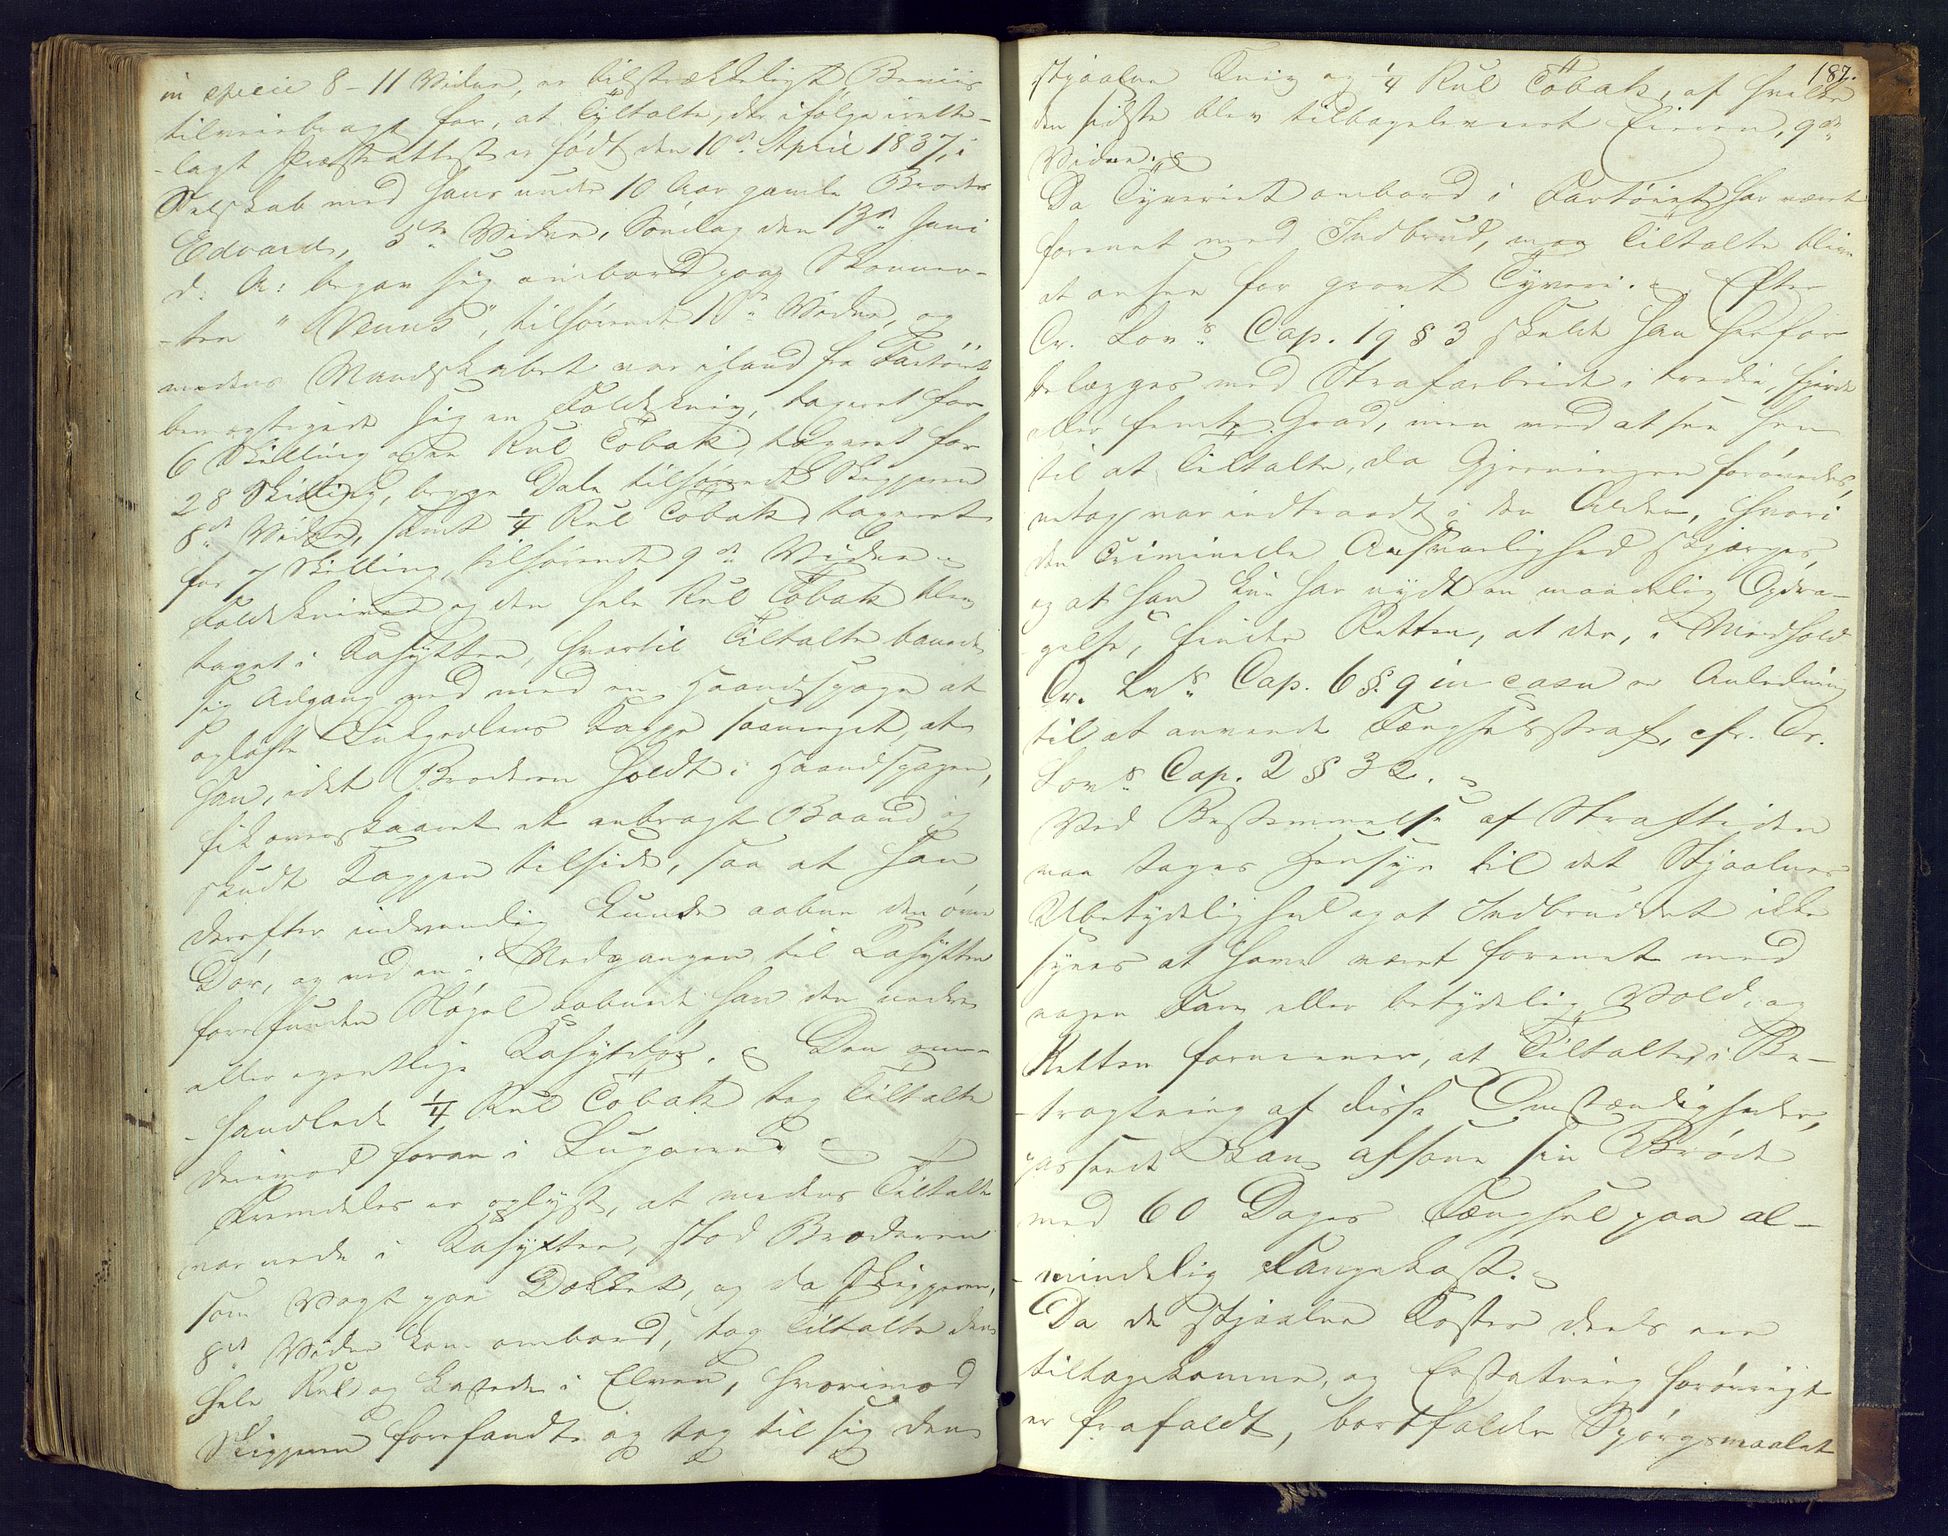 in specie 8 – 11 Vidner, er tilstrækkeligt Beviis
tilveiebragt for, at Tiltalte, der ifølge irette-
-lagt Præsteattest er født den 10de April 1837, i
Selskab med hans under 10 Aar gamle Broder
Edvard, 5te Vidne, Søndag den 13de Juni
d: A: begav sig ombord paa Skonner-
-ten "Venus", tilhørende 10de Vidne, og
medens Mandskabet var iland fra Fartøiet
bemægtigede sig en Foldekniv, taxeret for
6 Skilling og en Rul Tobak, taxeret for
28 Skilling, begge Dele tilhørende Skipperen
8de Vidne, samt 1/4 Rul Tobak, taxeret
for 7 Skilling, tilhørende 9de Vidne.
Foldekniven og den hele Rul Tobak blev
taget i Kahytten, hvortil Tiltalte banede
sig Adgang ved med en Haandspage at
opløfte Kappe saameget, at
han, idet Broderen holdt i Haandspagen,
fik overskaaret et anbragt Baand og
skudt Kappen tilside, saa at han
derefter indvendig kunde aabne den øvre
Dør, og ved en i Nedgangen til Kahytten
forefunden Nøgel aabnede han den nedre
eller egentlige Kahytdør. Den om-
-handlede 1/4 Rul Tobak tog Tiltalte
derimod foran i Lugaren.
Fremdeles er oplyst, at medens Tiltalte
var nede i Kahytten, stod Broderen
som Vagt paa Dækket, og da Skipperen,
8de Vidne kom ombord, tog Tiltalte den
hele Rul og kastede i Elven, hvorimod
Skipperen forefandt og tog til sig den
187.
stjaalne Kniv og 1/4 Rul Tobak, af hvilke
den sidste blev tilbageleveret Eieren, 9de
Vidne.
Da Tyveriet ombord i Fartøiet har været
forenet med Indbrud, maa Tiltalte blive
at ansee for grovt Tyveri. Efter
Cr. Lovs Cap. 19 § 3 skulde han herfor
belægges med Strafarbeide i tredie, fjerde
eller femte Grad, men med at see hen
til at Tiltalte, da Gjerningen forøvedes,
netop var indtraadt i den Alder, hvori
den criminelle Ansvarlighed skjærpes,
og at han kun har nydt en maadelig Opdra-
-gelse, finder Retten, at der, i Medhold
Cr. Lvs Cap. 6 §. 9 in casu er Anledning
til at anvende Fængselsstraf, cfr. Cr.
Lovs Cap. 2 § 32.
Ved Bestemmelse af Straftiden
maa tages Hensyn til det Stjaalnes
Ubetydelighed og at Indbruddet ikke
synes at have været forenet med
nogen Fare eller betydelig Vold, og
Retten formener, at Tiltalte, i Be-
-tragtning af disse Omstændigheder,
passende kan afsone sin Brøde
med 60 Dages Fængsel paa al-
-mindelig Fangekost.
Da de stjaalne Koster deels ere
tilbagekomne, og Erstatning forøvrigt
er frafaldt, bortfalder Spørgsmaalet